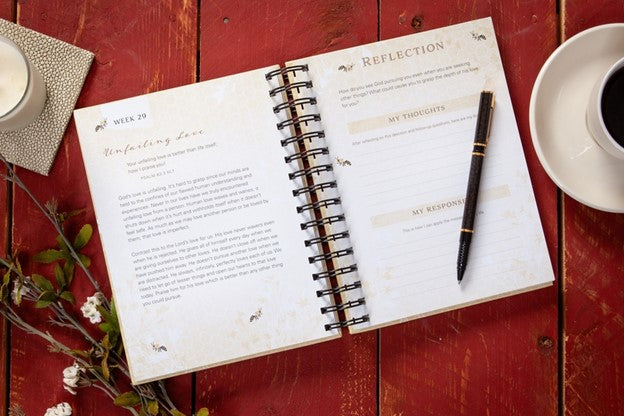 WEEK 29
Unfailing Love
Your unfailing love is better than life itself;
how I praise you!
PSALM 63:3 NLT
God's love is unfailing. It's hard to grasp since our minds are
held to the confines of our flawed human understanding and
experiences. Never in our lives have we truly encountered
unfailing love from a person. Human love wields and wavers, it
shuts down when it's hurt and withholds itself when it doesn't
feel safe. As much as we may love another person or be loved by
them, that love is imperfect.
Contrast this to the Lord's love for us. His love never wavers even
when he is rejected. He gives all of himself every day when we
are giving ourselves to other loves. He doesn't close off when we
have pushed him away. He doesn't pursue another love when we
are distracted. He always, infinitely, perfectly loves each of us. We
need to let go of lesser things and open our hearts to that love
today. Praise him for his love which is better than any other thing
you could pursue.
REFLECTION
How do you see God pursuing you even when you are seeking
other things? What could cause you to grasp the depth of his love
for you?
MY THOUGHTS
After reflecting on this devotion and follow-up questions, here are my
MY RESPONSE
This is how I can apply the message life.